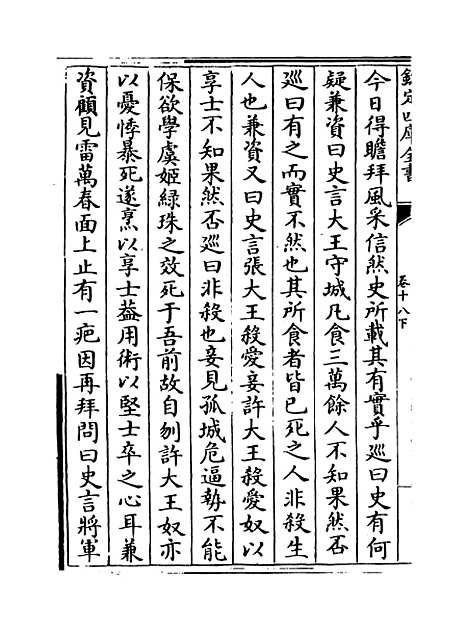 欽定四庫全書
卷十八下
今日得瞻拜風采信然史所載其有實乎巡曰史有何
疑兼資曰史言大王守城凡食三萬餘人不知果然否
巡曰有之而實不然也其所食者皆已死之人非殺生
人也兼資又曰史言張大王殺愛妾許大王殺愛奴以
享士不知果然否巡曰非殺也妾見孤城危逼勢不能
保欲學虞姬綠珠之效死于吾前故自刎許大王奴亦
以憂悸暴死遂烹以享士葢用術以堅士卒之心耳兼
資顧見雷萬春面上止有一疤因再拜問曰史言將軍